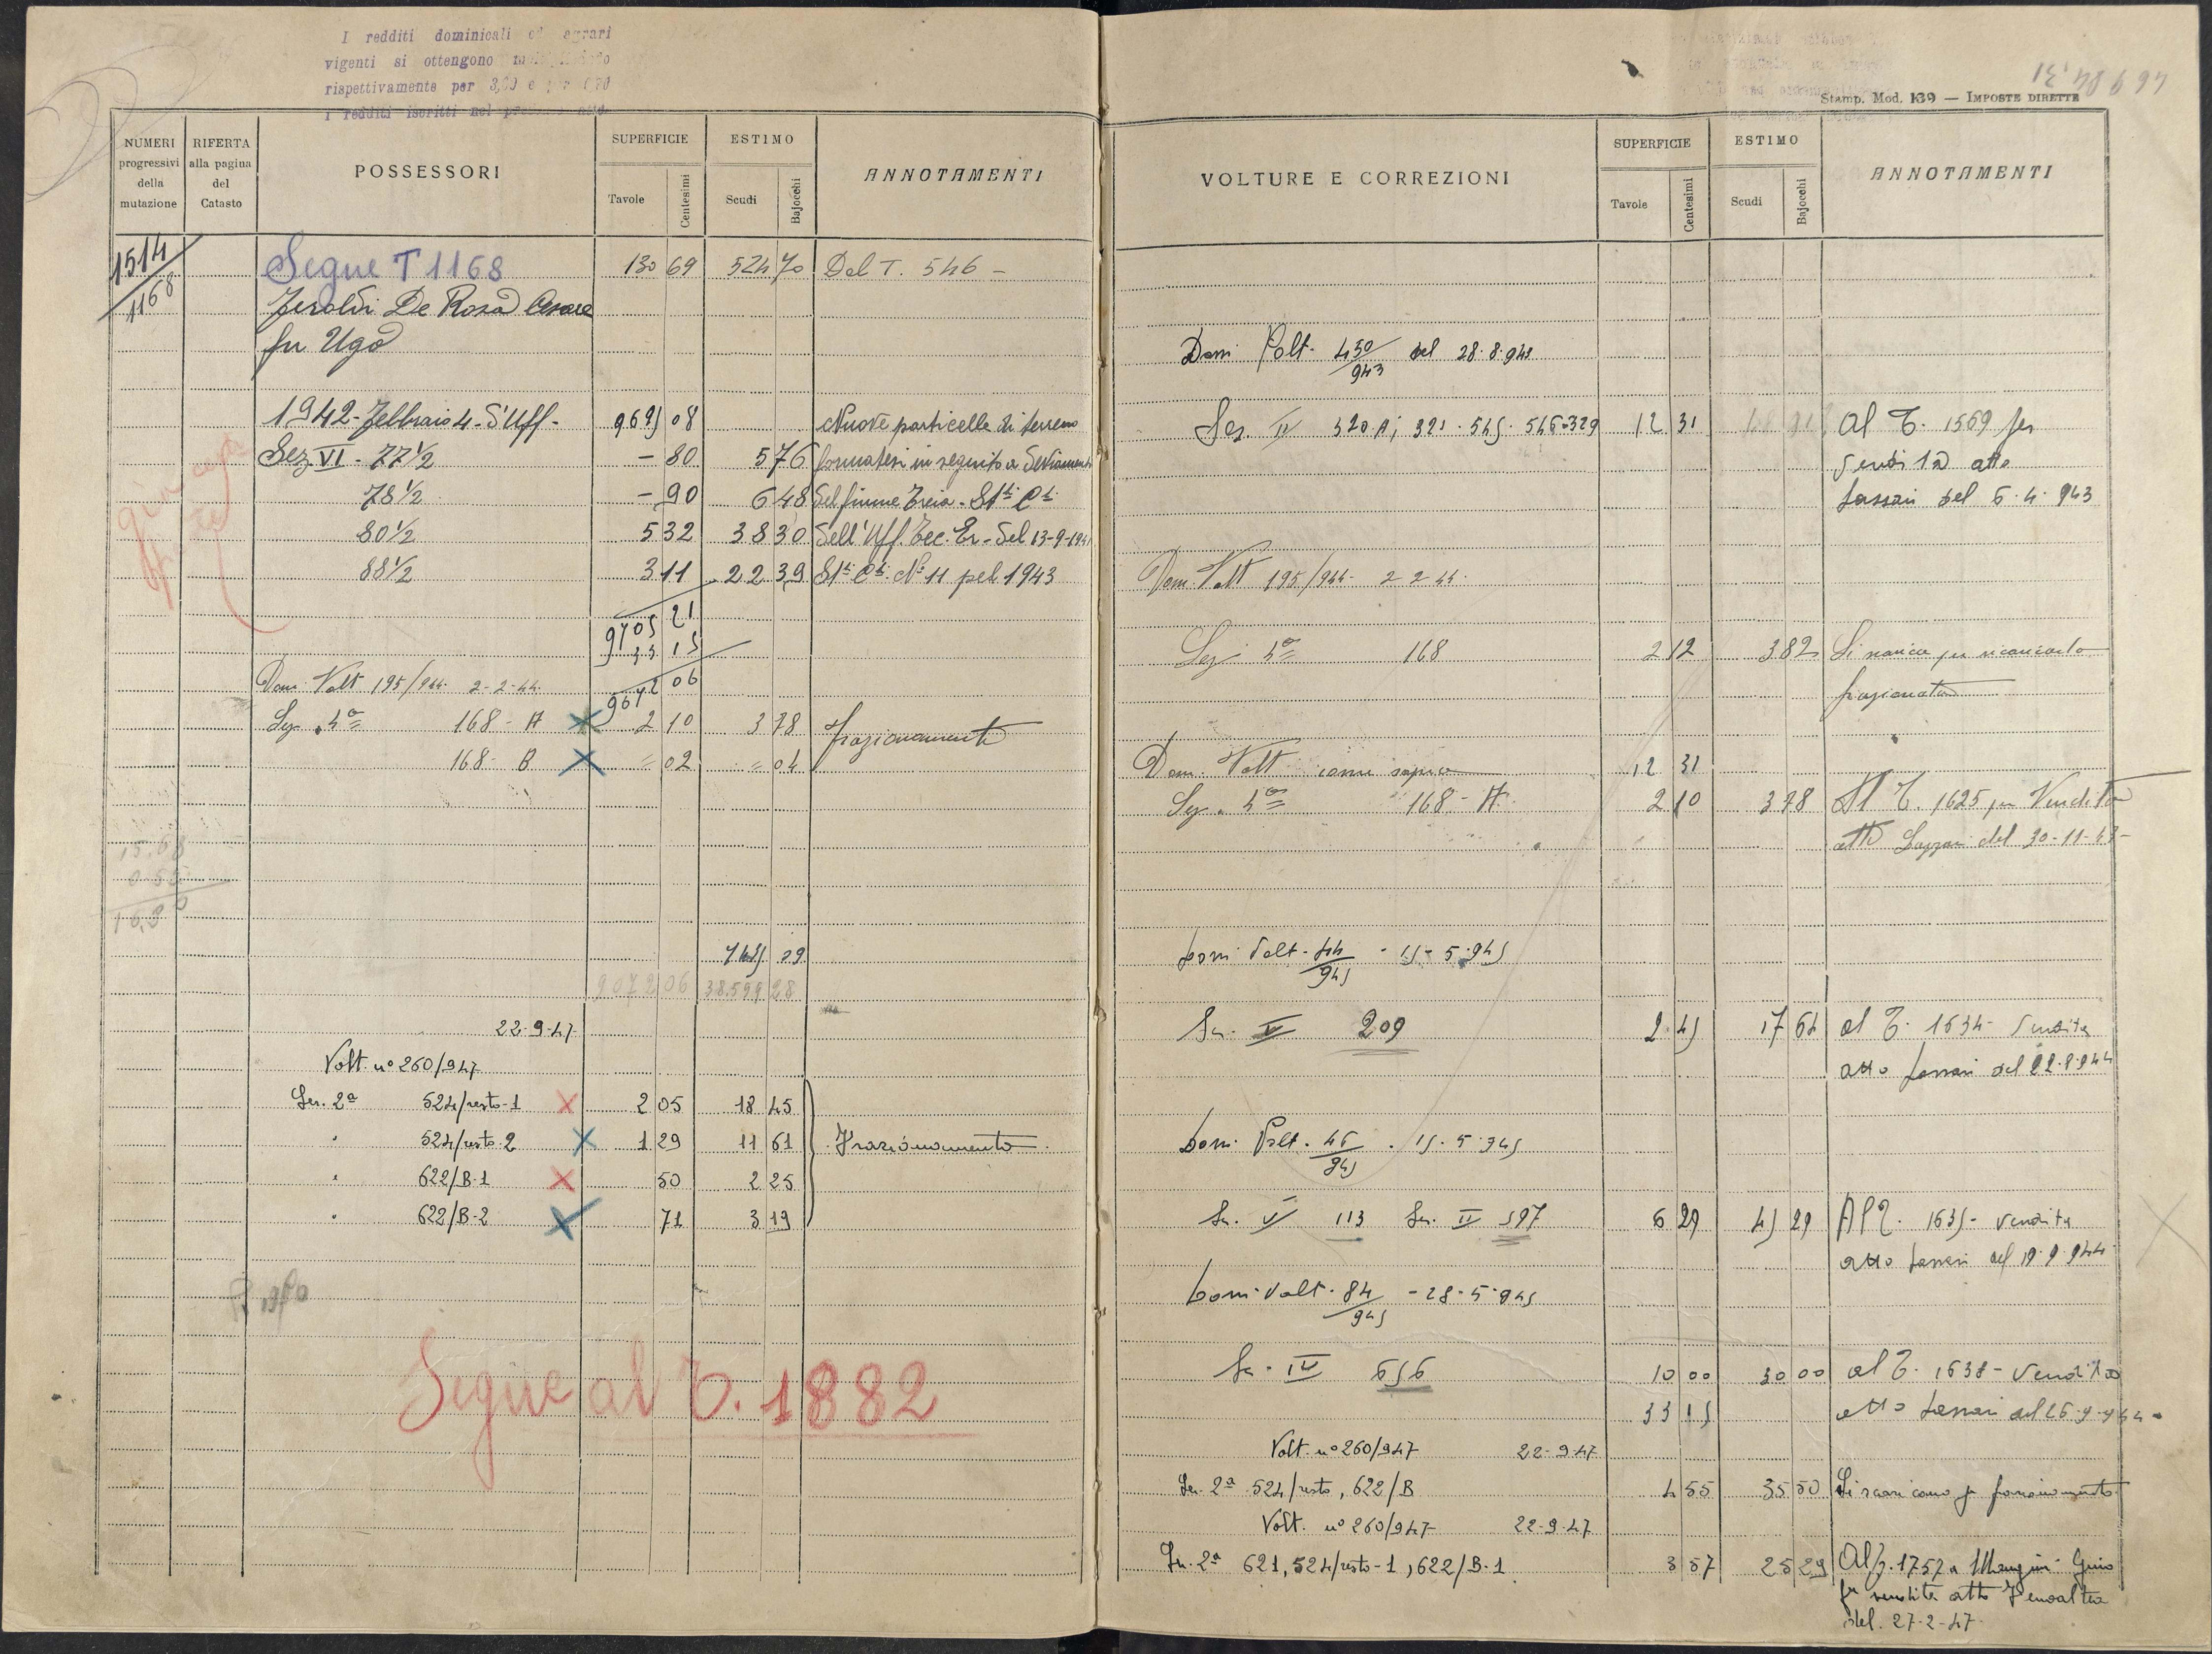 I redditi dominicali ed agrari
vigenti si ottengono
rispettivamente per 3,00 e per 0,70
i redditi iscritti nel
NUMERI progressivi della mutazione
RIFERTA alla pagina del Catasto
POSSESSORI
SUPERFICIE
Tavole
Centesimi
ESTIMO
Scudi
Bajocchi
ANNOTAMENTI
1514
1168
Segue T 1168 130 69 524 70 Dal T. 546 -
De Rosa Cesare
fu Ugo
1942 - Febbraio 4 - D'Uff - 9695 08 Nuove particelle di terreno
Sez VI - 77 1/2 - 80 5 76 formatesi in seguito a deviamento
78 1/2 - 90 6 48 del fiume Treia -
80 1/2 5 32 38 30 dell'Uff. Tec. Er. del 13-9-1941
88 1/2 3 11 22 39 N. 11 pel 1943
9705 21
33 15
9672 06
Dom. Volt 195/944 2-2-44
Sez. 4ª 168 - A 2 10 3 78 frazionamento
168 - B = 02 = 04
15.68
16.3
9072 06 38.599 28
22-9-47
Volt. n° 260/947
Sez. 2ª 524/resto-1 2 05 18 45
" 524/resto-2 1 29 11 61 Frazionamento
" 622/B-1 50 2 25
" 622/B-2 71 3 19
Segue al T. 1882
Stamp. Mod. 139 — IMPOSTE DIRETTE
VOLTURE E CORREZIONI
SUPERFICIE
Tavole
Centesimi
ESTIMO
Scudi
Bajocchi
ANNOTAMENTI
Dom Volt. 450/943 del 28.8.943
Sez. II 320.A; 321. 545. 546-329 12 31 Al T. 1569 per
vendita atto
del 6.4.943
Dom. Volt 195/944 - 2 2 44.
Sez 4ª 168 2 12 3 82 Si scarica per ricaricarlo
frazionato
Dom. Volt come sopra 12 31
Sez. 4ª 168 - A 2 10 3 78 Al T. 1625 per Vendita
atto del 30-11-43-
Dom Volt. 44/945 - 15-5-945
Sez. V 209 2 45 17 64 al T. 1634 - Vendita
atto del 22.8.944
Dom. Volt. 46/945 . 15.5.945
Sez. V 113 Sez. II 597 6 29 45 29 Al T. 1635 - Vendita
atto del 19.9.944
Dom. Volt. 84/945 - 28-5-945
Sez. IV 656 10 00 30 00 al T. 1638 - Vendita
33 15 atto del 26.9.944
Volt. n° 260/947 22-9-47
Sez. 2ª 524/resto, 622/B 4 55 35 50 Si scaricano per frazionamento
Volt. n° 260/947 22-9-47
Sez. 2ª 621, 524/resto-1, 622/B-1 3 57 25 29 Al p. 1757 a Mangini Gino
per vendita atto
del 27-2-47